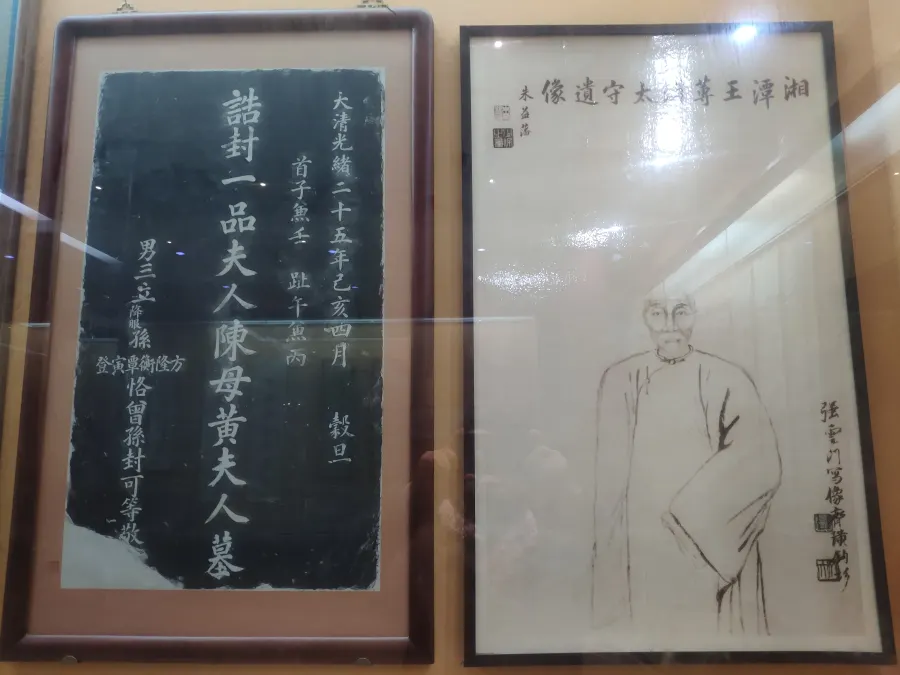 大清光緒二十五年己亥四月 穀旦
首子兼壬 趾午兼丙
誥封一品夫人陳母黃夫人墓
男三立降服孫方隆衡覃寅登恪曾孫封可等敬
湘潭王太守遺像
朱益藩
寫像齊璜